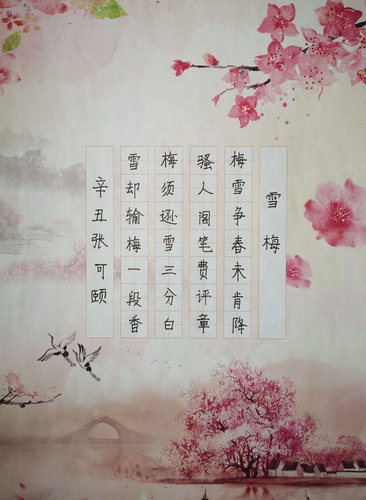 雪梅
梅雪争春未肯降
骚人阁笔费评章
梅须逊雪三分白
雪却输梅一段香
辛丑张可颐